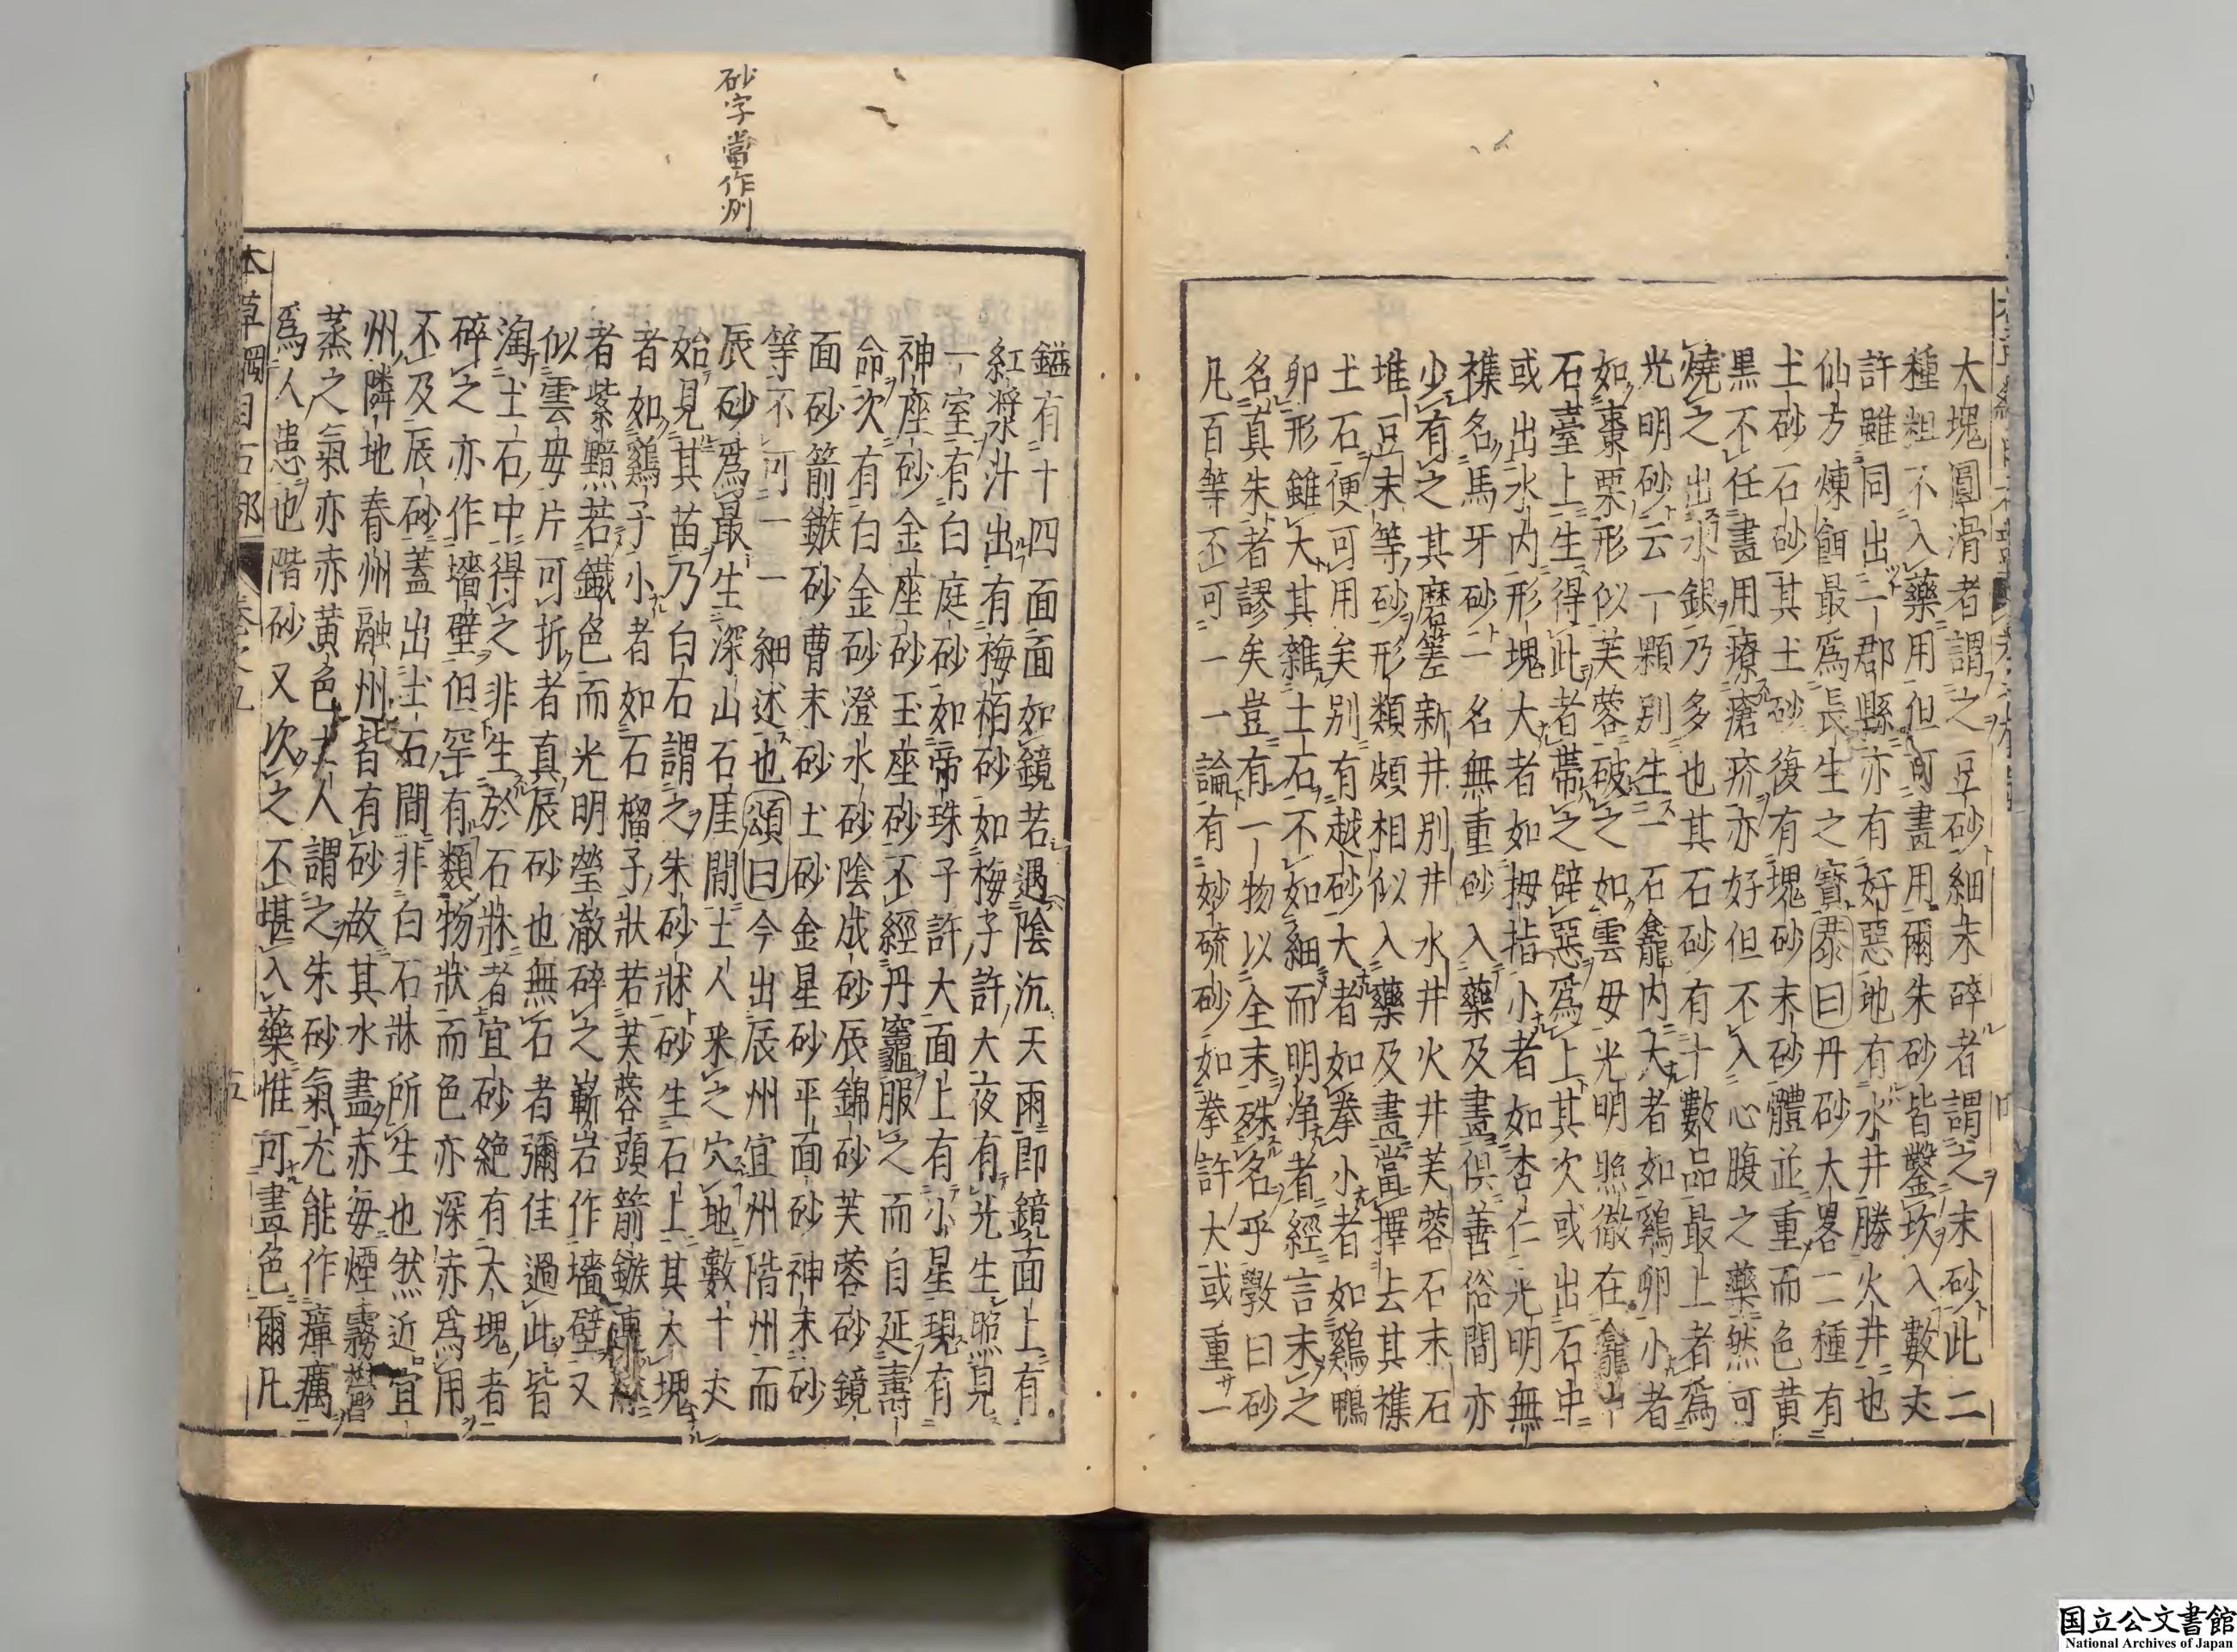 大塊圓滑者謂之豆砂細末碎者謂之末砂此二
種粗不入藥用但可畫用爾朱砂皆鑿坎入數丈
許雖同出一郡縣亦有好惡地有水井勝火井也
仙方煉餌最爲長生之寶恭曰丹砂大畧二種有
土砂石砂其土砂復有塊砂末砂體並重而色黄
黒不任畫用療瘡疥亦好但不入心腹之藥然可
燒之出水銀乃多也其石砂有十數品最上者爲
光明砂云一顆別生一石龕内大者如鷄卵小者
如棗栗形似芙蓉破之如雲母光明照徹在龕中
石臺上生得此者帶之辟惡爲上其次或出石中
或出水内形塊大者如拇指小者如杏仁光明無
襍名馬牙砂一名無重砂入藥及畫俱善俗間亦
少有之其磨嵳新井別井水井火井芙蓉石末石
堆豆末等砂形類頗相似入藥及畫當擇去其襍
土石便可用矣別有越砂大者如拳小者如鷄鴨
卵形雖大其雜土石不如細而明浄者經言末之
名真朱者謬矣豈有一物以全末殊名乎斆曰砂
凡百等不可一一論有妙硫砂如拳許大或重一
鎰有十四面面如鏡若遇陰沉天雨即鏡面上有
紅漿汁出有梅栢砂如梅子許大夜有光生照見
一室有白庭砂如帝珠子許大面上有小星現有
神座砂金座砂玉座砂不經丹竈服之而自延壽
命次有白金砂澄水砂陰成砂辰錦砂芙蓉砂鏡
面砂箭鏃砂曹末砂土砂金星砂平面砂神末砂
等不可一一細述也頌曰今出辰州宜州階州而
辰砂爲最生深山石厓間土人采之穴地數十丈
始見其苗乃白石謂之朱砂牀砂生石上其大塊
者如鷄子小者如石榴子狀若芙蓉頭箭鏃連牀
者紫黯若鐵色而光明瑩澈碎之嶄岩作墻壁又
似雲母片可折者真辰砂也無石者彌佳過此皆
淘土石中得之非生於石牀者宜砂絶有大塊者
碎之亦作墻壁但罕有類物狀而色亦深赤爲用
不及辰砂蓋出土石間非白石牀所生也然近宜
州隣地春州融州皆有砂故其水盡赤毎煙霧鬱
蒸之氣亦赤黄色土人謂之朱砂氣尤能作瘴癘
爲人患也階砂又次之不堪入藥惟可畫色爾凡
砂字當作州
国立公文書館
National Archives of Japan